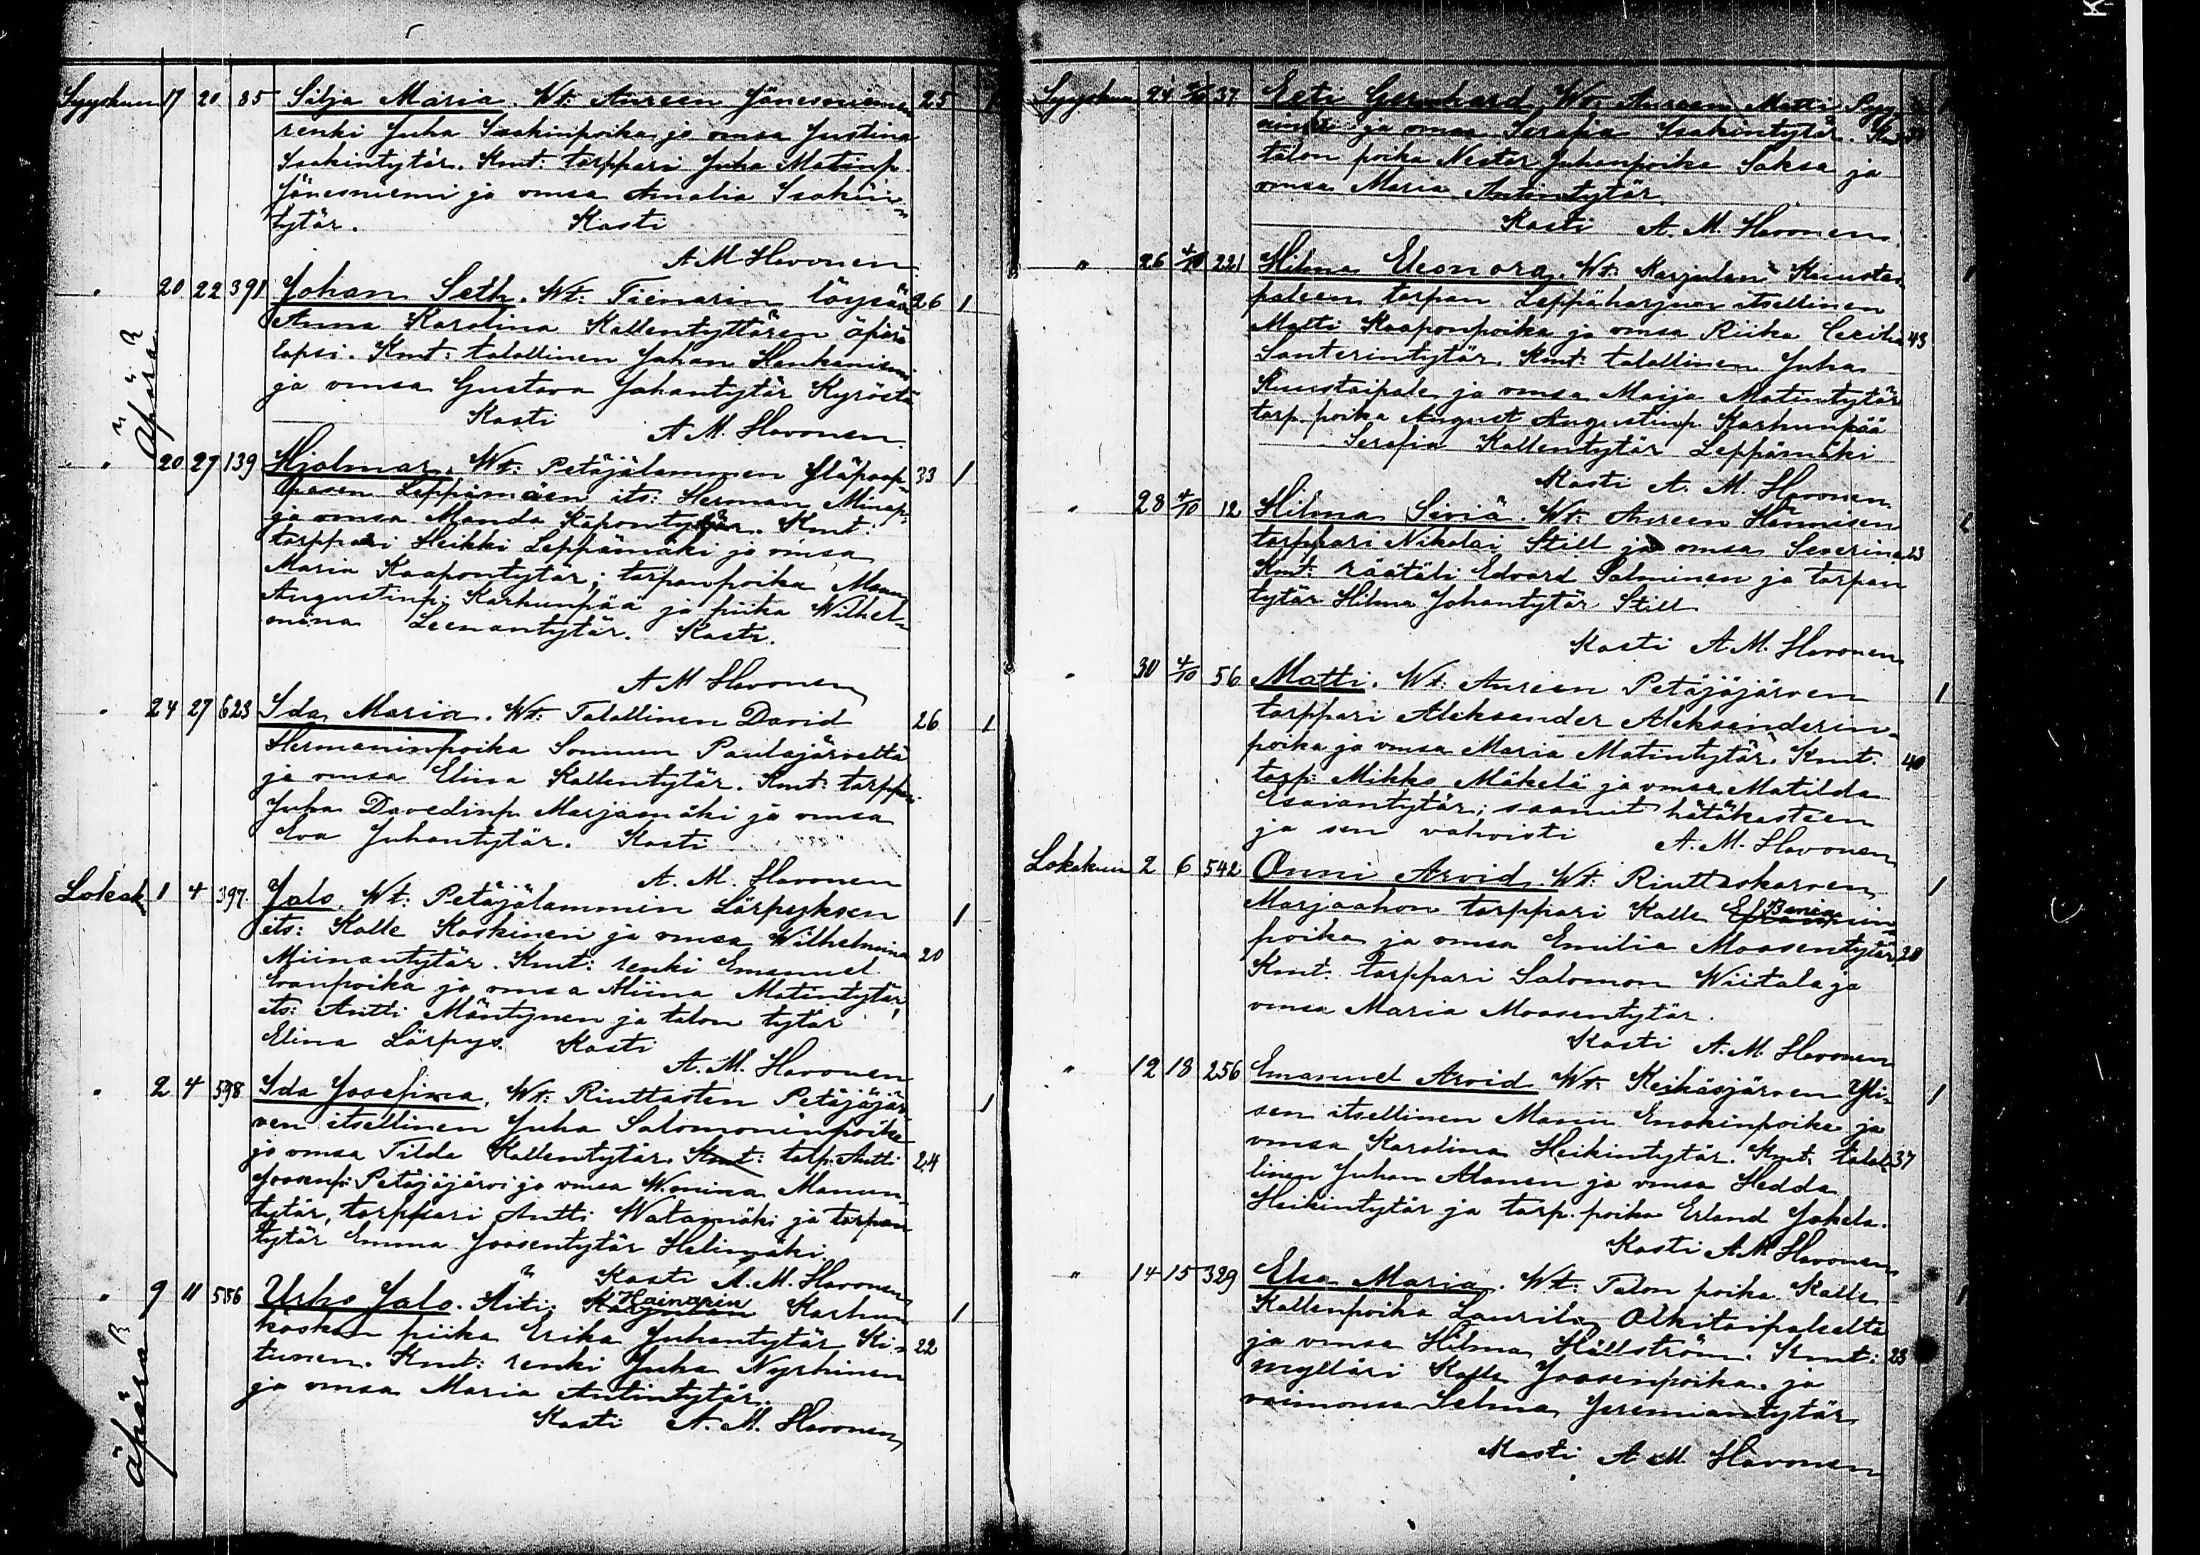 Syyskuun 17 20 85 Silja Maria. Wt: Aureen Jänesniemen 25 1
renki Juha Isakinpoika ja vmsa Justina
Isakintytär. Kmt: torppari Juha Matinp.
Jänesniemi ja vmsa Amalia Isakin-
tytär. Kasti
A M Havonen
" 20 22 391 Johan Seth. Wt: Tienarin löysän 26 1
Anna Karolina Kallentyttären äpärä
lapsi. Kmt: talollinen Johan Henkaniemi
ja vmsa Gustava Johantytär Kyröstä
Kasti
A M. Havonen
äpärä
" 20 27 139 Hjalmar. Wt: Petäjälammen 33 1
Leppämäen its: Herman Minap:
ja vmsa Manda Kapontytär. Kmt:
torppari Heikki Leppämäki ja vmsa
Maria Kaapontytär; torpanpoika Manu
Augustinp. Karhunpää ja piika Wilhel-
mina Leenantytär. Kasti.
A M Havonen
" 24 27 623 Ida Maria. Wt: Talollinen David 26 1
Hermaninpoika Sonnun Paulajärveltä
ja vmsa Elina Kallentytär. Kmt: torpp.
Juha Davedinp Marjamäki ja vmsa
Eva Juhantytär. Kasti
A. M. Havonen
Lokak 1 4 397 Jalo. Wt: Petäjälammin Lärpyksen 1
its: Kalle Koskinen ja vmsa Wilhelmina 20
Miinantytär. Kmt: renki Emanuel
Evanpoika ja vmsa Miina Matintytär,
its: Antti Mäntynen ja talon tytär
Elina Lärpys. Kasti
A. M. Havonen
" 2 4 598 Ida Josefina. Wt: Riuttasten Petäjäjär- 1
ven itsellinen Juha Salomoninpoika
ja vmsa Tilda Kallentytär. Kmt: torp. Antti 24
Joosenp: Petäjäjärvi ja vmsa Wenina Manun-
tytär, torppari Antti Watamäki ja torpan
tytär Emma Joosentytär Helinmäki.
Kasti A. M. Havonen
" 9 11 556 Urho Jalo. Äiti: Hainarin Karhun 1
kosken piika Erika Juhantytär Ki- 22
tunen. Kmt: renki Juha Nyrhinen
ja vmsa Maria Antintytär.
Kasti A. M. Havonen
äpärä
Syyskuu 24 37 Eeti Gernhard. Wt: Aureen Matti 1
ja vmsa Serafia Isakintytär. Kmt
talon poika Nestor Juhanpoika Saksa ja
vmsa Maria Antintytär
Kasti A. M. Havonen
" 26 4/10 221 Hilma Eleonora. Wt: Karjulan Kuustai- 1
paleen torpan Leppäharjun itsellinen
Matti Kaaponpoika ja vmsa Riika Cecilia 43
Santerintytär. Kmt: talollinen Juha
Kuustaipale ja vmsa Maija Matintytär
torp. poika August Augustinp. Karhunpää
Serafia Kallentytär Leppämäki
Kasti A. M. Havonen
" 28 4/10 12 Hilma Siviä. Wt: Aureen Hännisen
torppari Nikolai Still ja vmsa Severina 23
Kmt: räätäli Edvard Salminen ja torpan
tytär Hilma Johantytär Still
Kasti A M. Havonen
" 30 4/10 56 Matti. Wt: Aureen Petäjäjärven 1
torppari Aleksander Aleksanderin-
poika ja vmsa Maria Matintytär. Kmt: 40
torp: Mikko Mäkelä ja vmsa Matilda
Esaiantytär; saanut hätäkasteen
ja sen vahvisti A. M. Havonen
Lokakuu 2 6 542 Onni Arvid. Wt: Riuttaskorven 1
Marjaahon torppari Kalle Benja-
poika ja vmsa Emilia Moosentytär 20
Kmt. torppari Salomon Wiitala ja
vmsa Maria Moosentytär.
Kasti A. M. Havonen
" 12 18 256 Emanuel Arvid Wt: Keihäsjärven Yli- 1
sen itsellinen Manu Enokinpoika ja
vmsa Karolina Heikintytär. Kmt. talol 37
linen Juhan Alanen ja vmsa Hedda
Heikintytär ja torp. poika Erland Jokela.
Kasti A. M. Havonen
" 14 15 329 Elsa Maria. Wt: Talon poika Kalle 1
Kallenpoika Laurila Olkitaipaleelta
ja vmsa Hilma Hällström. Kmt: 23
mylläri Kalle Joosenpoika ja
vaimonsa Selma Jeremiantytär
Kasti A M Havonen